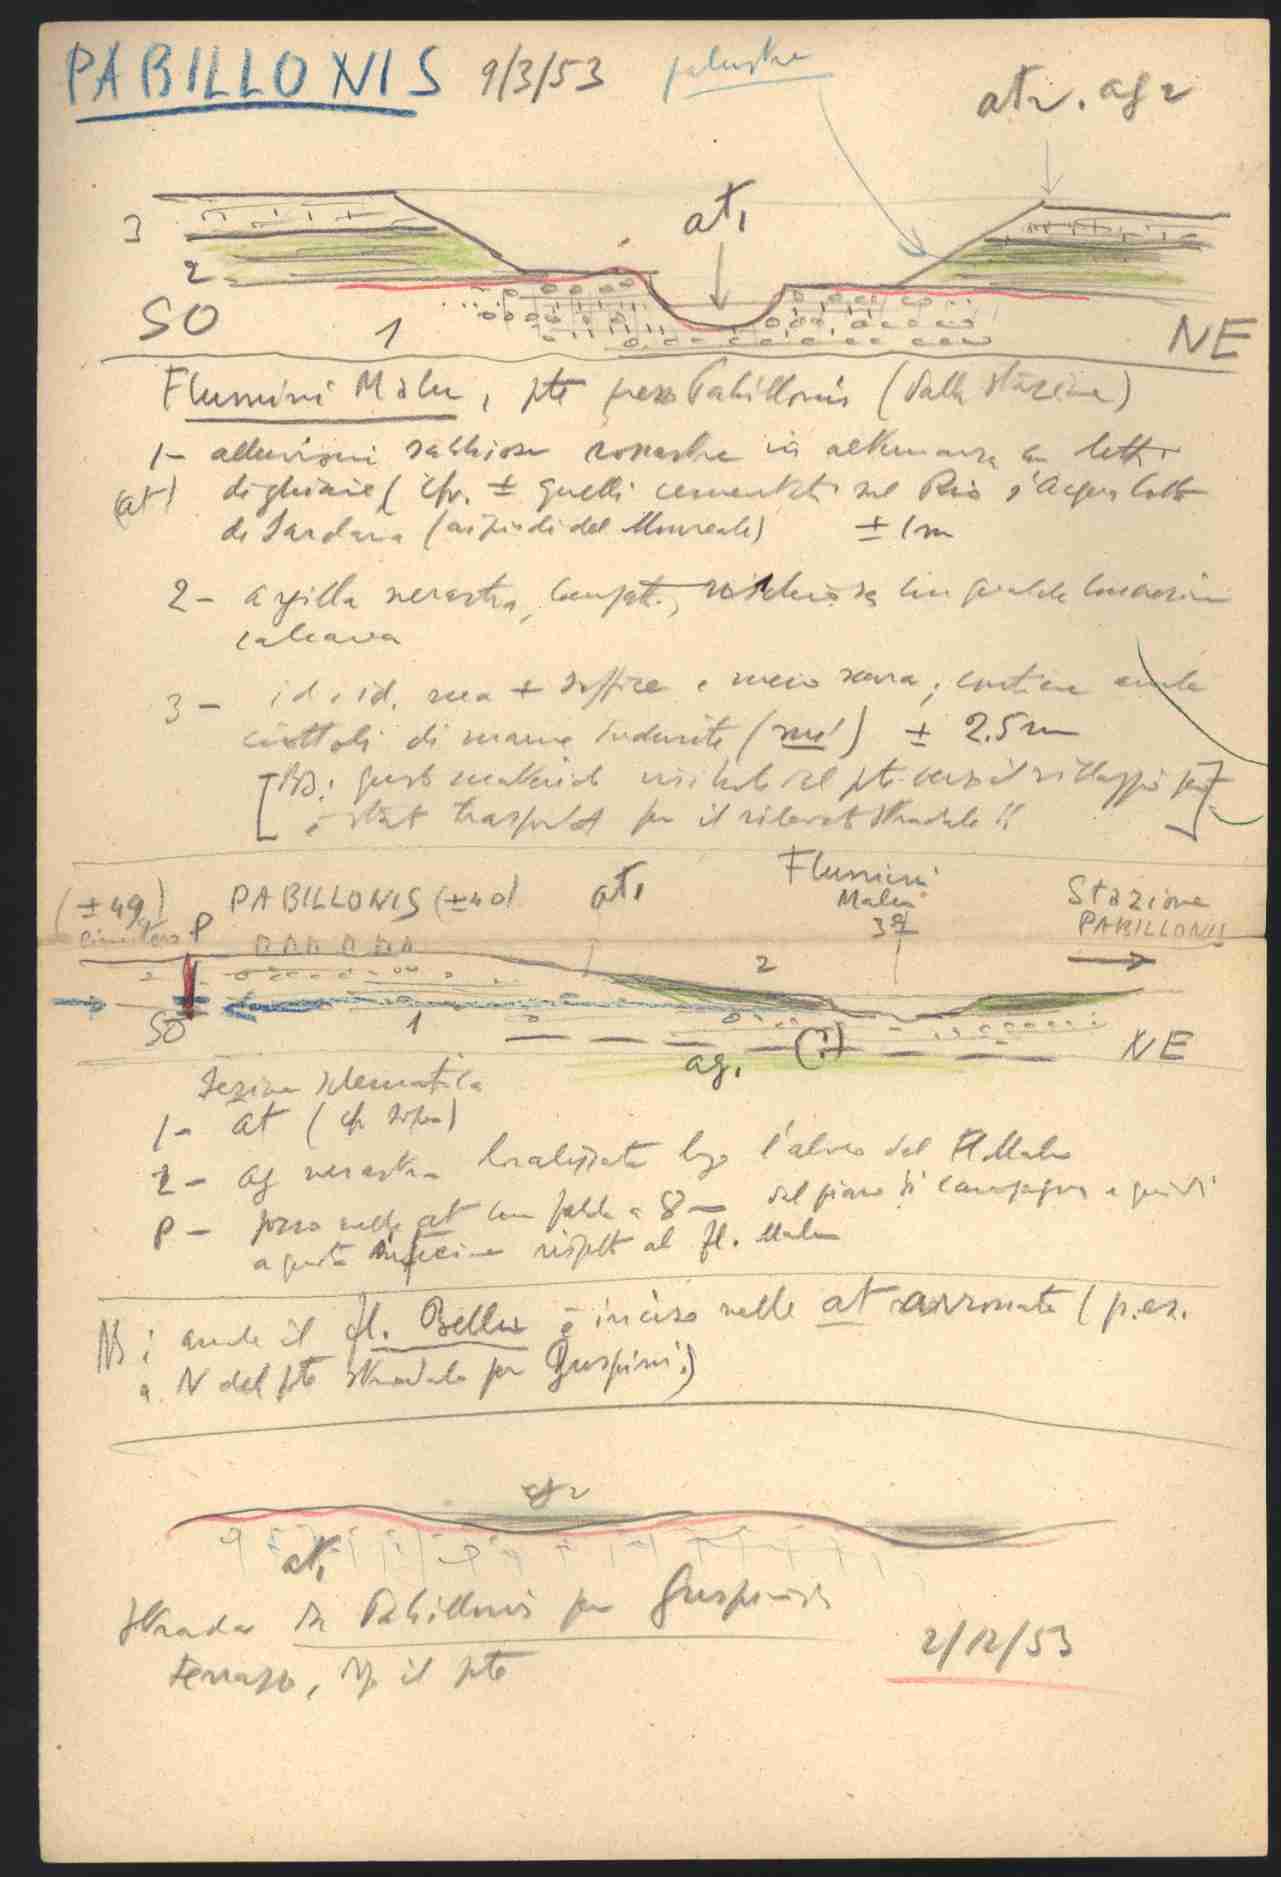 PABILLONIS 9/3/53 palustre at2. ag2
at1
3
2
SO 1 NE
Flumini Malu, pte presso Pabillonis (dalla stazione)
1- alluvioni sabbiose rossastre in alternanza con letti
(at) di ghiaie (cfr. ± quelli cementati sul Rio s'Acqua Cotta
di Sardara (ai piedi del Monreale) ± 1m
2- argilla nerastra, compatta, con qualche concrezione
calcarea
3- id. id. ma + soffice e meno scura; contiene anche
ciottoli di marne indurite (me) ± 2.5m
[NB: questo materiale visibile al pte verso il villaggio
è stato trasportato per il rilevato stradale!!]
(±49) PABILLONIS (±40) at1 Flumini Stazione
cimitero P Malu PABILLONIS
2
SO 1 ag1 (?) NE
Sezione schematica
1- at (cfr sopra)
2- ag nerastra localizzata lungo l'alveo del Fl. Malu
P- pozzo nelle at con falda a 8m dal piano di campagna e quindi
a quota rispetto al fl. Malu
NB: anche il fl. Bellu è inciso nelle at arrossate (p.es.
a N del pte stradale per Guspini.)
ag2
at1
Strada da Pabillonis per Guspini
terrazzo, dopo il pte 2/12/53